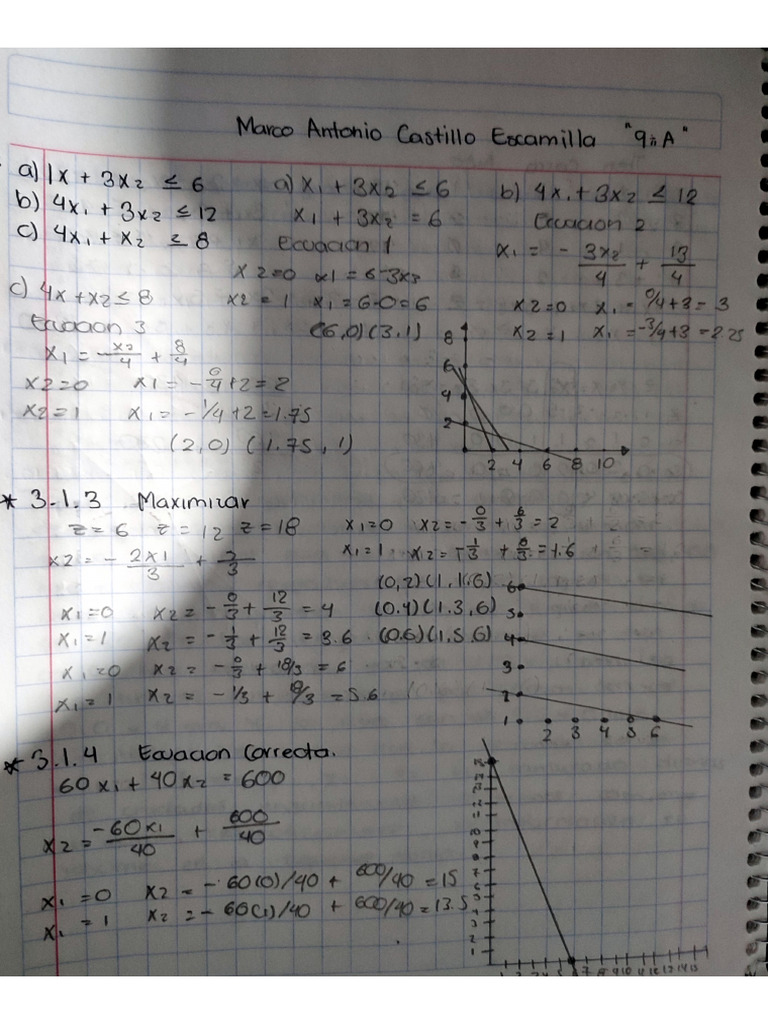 Marco Antonio Castillo Escamilla "9nA"
a) 1x + 3x2 ≤ 6
b) 4x1 + 3x2 ≤ 12
c) 4x1 + x2 ≤ 8
a) x1 + 3x2 ≤ 6
x1 + 3x2 = 6
Ecuacion 1
x2=0 x1=6-3x2
x2=1 x1=6-0=6
(6,0)(3,1)
b) 4x1+3x2 ≤ 12
Ecuacion 2
x1 = - 3x2/4 + 13/4
x2=0 x1 = 0/4+3 = 3
x2=1 x1 = -3/4+3 = 2.25
c) 4x+x2 ≤ 8
Ecuacion 3
x1 = - x2/4 + 8/4
x2=0 x1 = - 0/4 + 2 = 2
x2=1 x1 = - 1/4 + 2 = 1.75
(2,0) (1.75, 1)
8
6
4
2
2 4 6 8 10
* 3.1.3 Maximizar
z=6 z=12 z=18
x2 = - 2x1/3 +
x1=0 x2 = - 0/3 + 6/3 = 2
x1=1 x2 = - 1/3 + 6/3 = 1.6
(0,2)(1,1.6)
x1=0 x2 = - 0/3 + 12/3 = 4
(0.4)(1.3,6)
x1=1 x2 = - 1/3 + 12/3 = 3.6
(0.6)(1,5.6)
x1=0 x2 = - 0/3 + 18/3 = 6
x1=1 x2 = - 1/3 + 18/3 = 5.6
6
5
4
3
2
1 2 3 4 5 6
* 3.1.4 Ecuacion Correcta.
60x1 + 40x2 = 600
x2 = -60x1/40 + 600/40
x1 = 0 x2 = - 60(0)/40 + 600/40 = 15
x1 = 1 x2 = - 60(1)/40 + 600/40 = 13.5